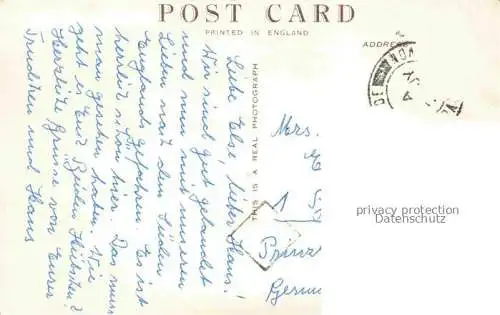 POST CARD
PRINTED IN ENGLAND
ADDRESS
THIS IS A REAL PHOTOGRAPH
Liebe Else, lieber Hans!
Wir sind gut gelandet
und nun mit unseren
Lieben nach dem Süden
Englands gefahren. Es ist
herrlich schön hier. Das muss
man gesehen haben. Wie
geht es Euch Beiden
Herzliche Grüsse von Eurer
und Hans
Mrs.
1
privacy protection
Datenschutz